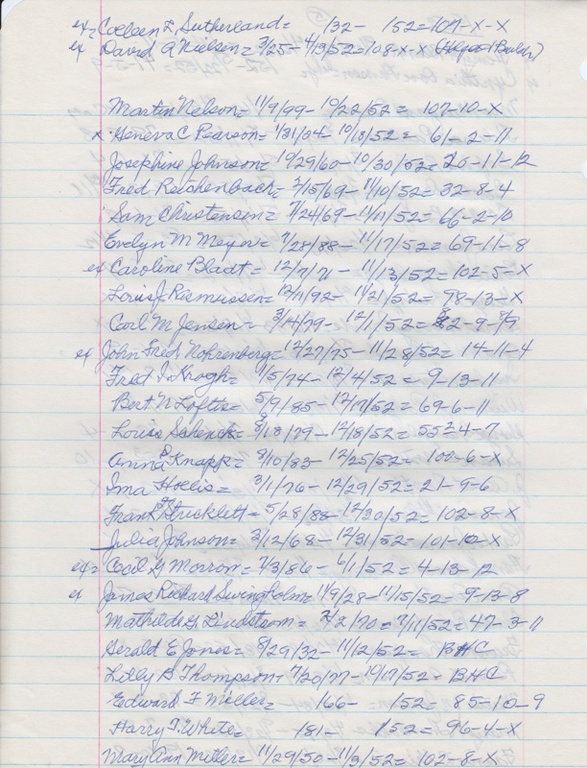 ex= Colleen F. Sutherland = 132 - 152 = 107-X-X
ex David A Nielsen = 3/25 - 4/13/52 = 108-X-X
Martin Nelson = 11/9/99 - 10/22/52 = 107-10-X
x Geneva C Pearson = 1/31/04 - 10/18/52 = 61-2-11
Josephine Johnson = 10/29/60 - 10/30/52 = 26-11-12
Fred Reichenbach = 2/15/69 - 11/10/52 = 32-8-4
Sam Christensen = 7/24/69 - 11/11/52 = 66-2-10
Evelyn M Meyer = 7/28/88 - 11/17/52 = 69-11-8
ex Caroline Bladt = 12/7/71 - 11/13/52 = 102-5-X
Louis J. Rasmussen = 12/11/92 - 11/21/52 = 98-13-X
Carl M Jensen = 3/14/79 - 12/1/52 =
ex John Fred Nohrenberg = 12/27/75 - 11/28/52 = 14-11-4
Fred I. Krogh = 1/5/74 - 12/4/52 = 9-13-11
Bert N Loftis = 5/9/85 - 12/17/52 = 69-6-11
Louis Schenck = 8/18/79 - 12/18/52 = 55-4-7
Anna S Knapp = 8/10/83 - 12/25/52 = 103-6-X
Ima Hollis = 3/1/76 - 12/29/52 = 21-9-6
Frank Stricklett = 5/28/88 - 12/30/52 = 102-8-X
Julia Johnson = 3/12/68 - 12/31/52 = 101-10-X
ex= Cecil G Morrow = 7/3/86 - 6/1/52 = 4-13-12
ex James Richard Swingholm = 11/9/28 - 11/15/52 = 9-13-8
Mathilde G. Lindstrom = 2/2/70 = 7/11/52 = 47-3-11
Gerald E Jones = 8/29/32 - 11/12/52 = BHC
Lilly B Thompson = 7/20/77 - 10/17/52 = BHC
Edward F Moller = 166 - 152 = 85-10-9
Harry T. White = 181 - 152 = 96-4-X
Mary Ann Miller = 11/29/50 - 11/3/52 = 102-8-X